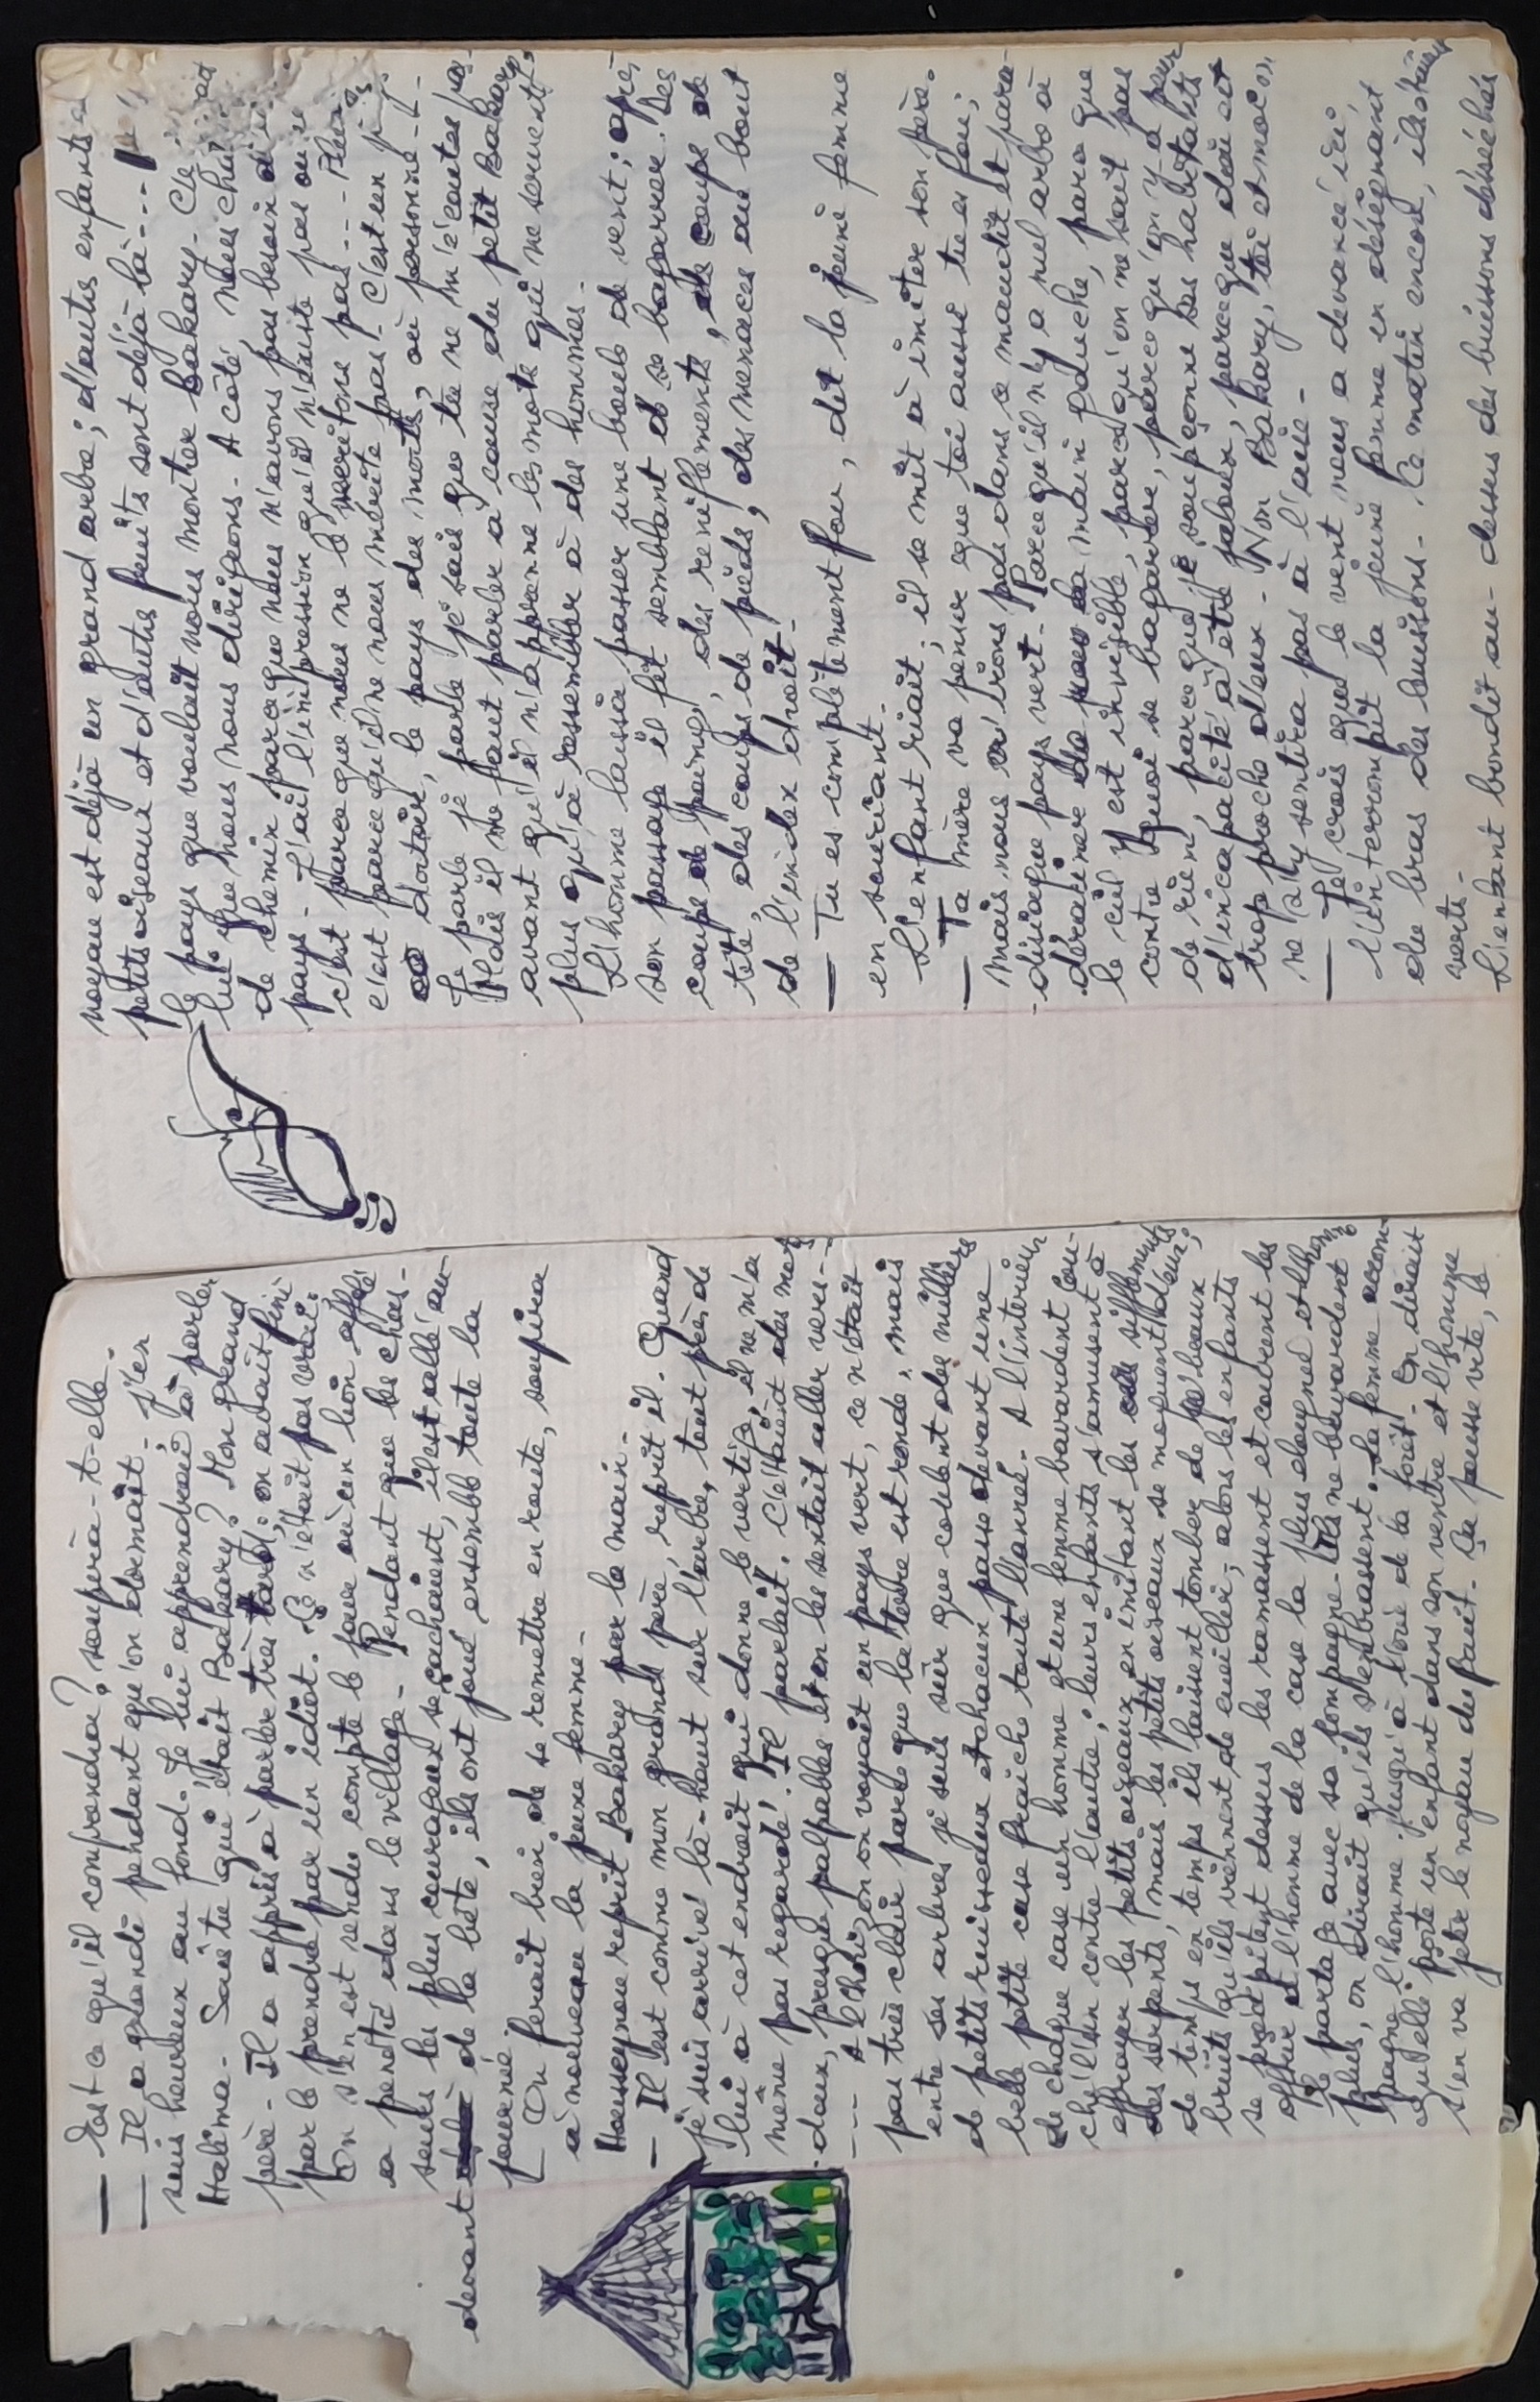 — Est ce qu'il comprendra? soupira-t-elle.
— Il a grandi pendant qu'on dormait. J'en
suis heureux au fond. Je lui apprendrai à parler
Halima. Sais-tu qui était Bakary? Mon grand
père. Il a appris à parler très tard; on avait fini
par le prendre par un idiot. Ce n'était pas vrai.
On s'en est rendu compte le jour où un lion affolé
a pénétré dans le village. Pendant que les chas-
seurs les plus courageux se cachaient, il est allé au-
devant de la bête, ils ont joué ensemble toute la
journée.
— On ferait bien de se remettre en route, soupira
à nouveau la jeune femme.
Housseynou reprit Bakary par la main.
— Il est comme mon grand père, reprit il. Quand
je suis arrivé là-haut sur l'arbre, tout près de
lui à cet endroit qui donne le vertige, il ne m'a
même pas regardé! Il parlait. C'était des mots
doux, presque palpables et on les sentait aller vers-
--- A l'horizon on voyait un pays vert, ce n'était
pas très clair parce que la terre est ronde, mais
entre ses arbres je suis sûr que coulent des milliers
de petits ruisseaux et chacun passe devant une
belle petite case fraîche toute l'année. A l'intérieur
de chaque case un homme et une femme bavardent cou-
chés l'un contre l'autre; leurs enfants s'amusent à
effrayer les petits oiseaux en imitant les sifflements
des serpents, mais les petits oiseaux se moquent d'eux;
de temps en temps ils laissent tomber de beaux
fruits qu'ils viennent de cueillir; alors les enfants
se précipitent dessus, les ramassent et courent les
offrir à l'homme de la case la plus éloignée et l'homme
le partage avec sa compagne. Ils ne bavardent
plus, on dirait qu'ils s'embrassent. La femme accom-
pagne l'homme jusqu'à l'orée de la forêt. On dirait
qu'elle porte un enfant dans son ventre et l'homme
s'en va jeter le noyau du fruit. Ça pousse vite, le
noyau est déjà un grand arbre; d'autres enfants
petits oiseaux et d'autres fruits sont déjà là---
le pays que voulait nous montrer Bakary. C'e
lui que nous nous dirigeons. A côté nous
de chemin parce que nous n'avons pas besoin d'un
pays. J'ai l'impression qu'il n'existe pas ou
c'est parce que nous ne le méritons pas ---
c'est parce qu'il ne nous mérite pas. C'est un
dortoir, le pays des morts, où personne
Je parle je parle je sais que tu ne m'écoutes pas
Mais il me faut parler à cause du petit Bakary,
avant qu'il n'apprenne les mots qui ne servent
plus qu'à ressembler à des hommes.
L'homme laissa passer une boule de vent; après
son passage il fit semblant de se bagarrer. Des
coups de poing, des reniflements, des coups de
tête, des coups de pieds, des menaces au bout
de l'index droit.
— Tu es complètement fou, dit la jeune femme
en souriant.
L'enfant riait; il se mit à imiter son père.
— Ta mère va penser que toi aussi tu es fou;
mais nous n'irons pas dans ce maudit et para-
disiaque pays vert. Parce qu'il n'y a nul arbo à
déraciner de la main gauche, parce que
le ciel y est invisible, parce qu'on ne sait pas
contre quoi se bagarrer, parce qu'on y a peur
de rien, parce que je soupçonne ses habitants
d'incapacité à être jaloux, parce que dieu est
trop proche d'eux. Non Bakary, toi et moi on
ne s'y sentira pas à l'aise.
— Je crois que le vent nous a devancé ici,
l'interrompit la jeune femme en désignant
du bras des buissons. Ce matin encore, ils étaient
verts.
L'enfant bondit au-dessus des buissons désséchés